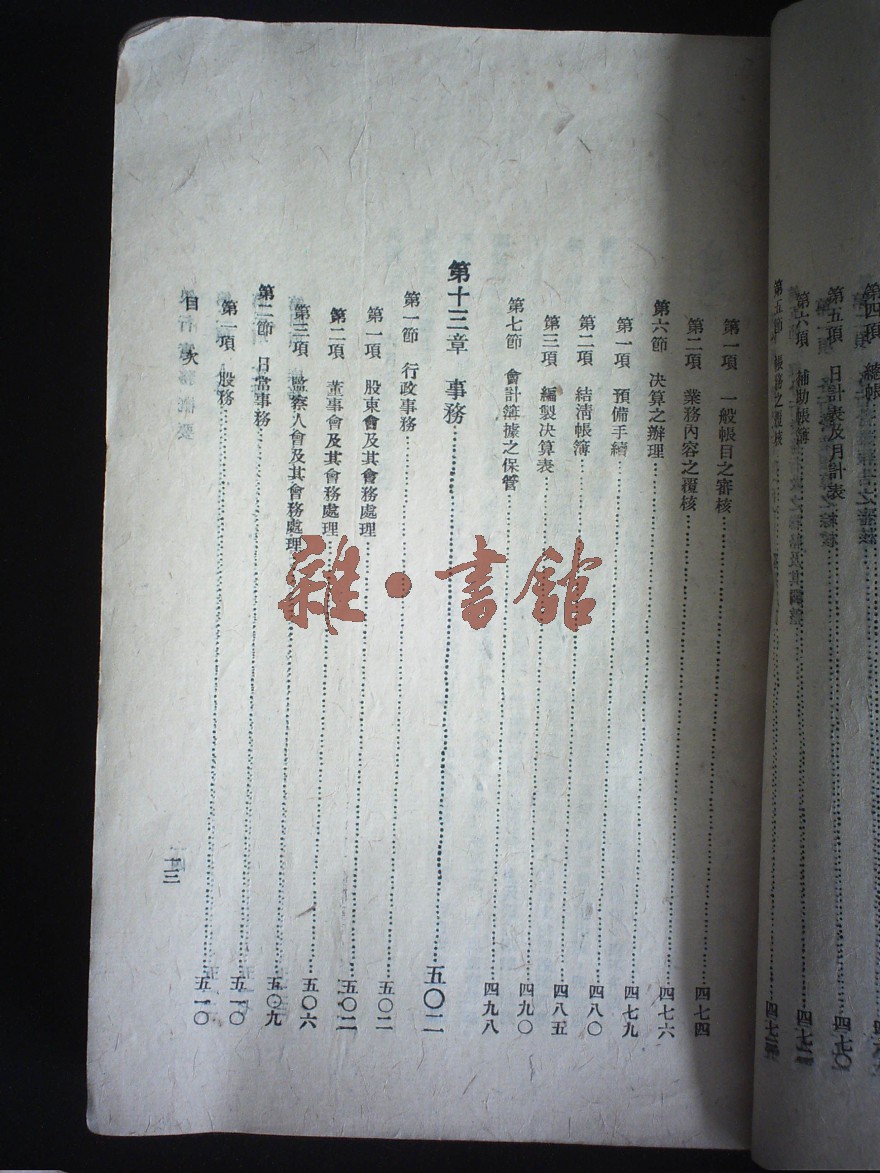 第四項 總帳
第五項 日計表及月計表……四七〇
第六項 補助帳簿
第五節 帳務之覆核
第一項 一般帳目之審核……四七四
第二項 業務內容之覆核……四七六
第六節 決算之辦理……四七九
第一項 預備手續……四八〇
第二項 結清帳簿……四八五
第三項 編製決算表……四九〇
第七節 會計簿據之保管……四九八
第十三章 事務……五〇二
第一節 行政事務……五〇二
第一項 股東會及其會務處理……五〇二
第二項 董事會及其會務處理……五〇六
第三項 監察人會及其會務處理……五〇九
第二節 日常事務……五一〇
第一項 股務……五一〇
目次
一三
雜·書館